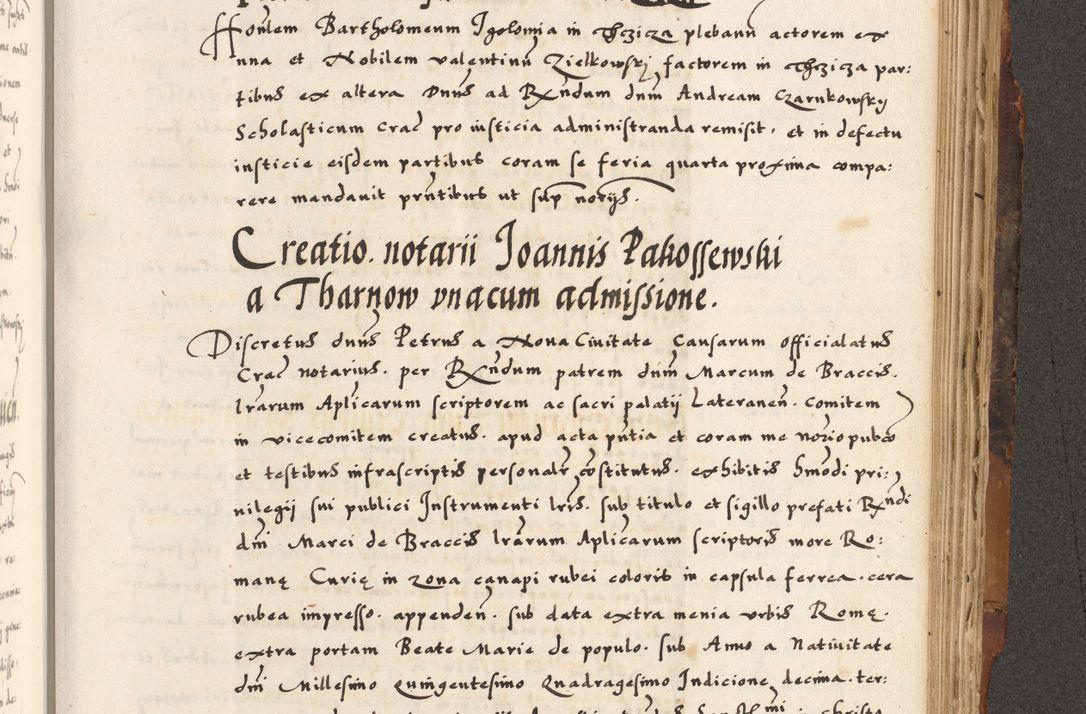 Honlem Bartholomeum Igolomia in Thczicza plebanum actorem ex
una et Nobilem Valentinū Zielkowskj factorem in Thczicza par:
tibus ex altera Dnūs ad Rx̄ndum dnm̄ Andream Czarnkowskij
Scholasticum Crac̄ pro iusticia administranda remisit, et in defectu
iusticie eisdem partibus coram se feria quarta proxima compa:
rere mandauit prn̄tibus ut sup̄ notrijs.
Creatio notarii Joannis Pakossewski
a Tharnow vnacum admissione.
Discretus dnūs Petrus a Noua Ciuitate Causarum officialatus
Crac̄ notarius. per Rx̄ndum patrem dnm̄ Marcum de Braccis.
lrārum Aplicarum scriptorem ac sacri palatij Lateraneñ. comitem
in vicecomitem creatus. apud acta pn̄tia et coram me norio pubco
et testibus infrascriptis personalr̄ cōstitutus. exhibitis hmōdi pri:
uilegij sui publici Instrumenti lris. sub titulo et sigillo prefati Rx̄ndi
dnī Marci de Braccis lrārum Aplicarum scriptoris more Ro:
manę Curię in zona canapi rubei coloris in capsula ferrea. cera
rubea impresso. appendeñ. sub data extra menia vrbis Romę.
extra portam Beate Marie de populo. sub Anno a Natiuitate
dnī Millesimo Quingentesimo Quadragesimo Indicione decima ter: